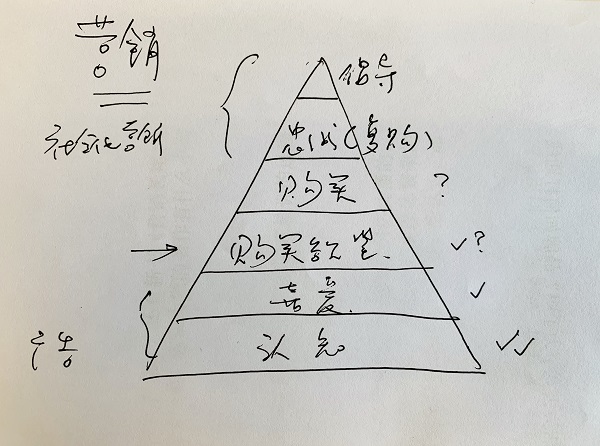 营销
倡导
社社营销
忠诚(复购)
购买 ?
→ 购买欲望. ✓?
喜爱. ✓
广告 认知 ✓✓